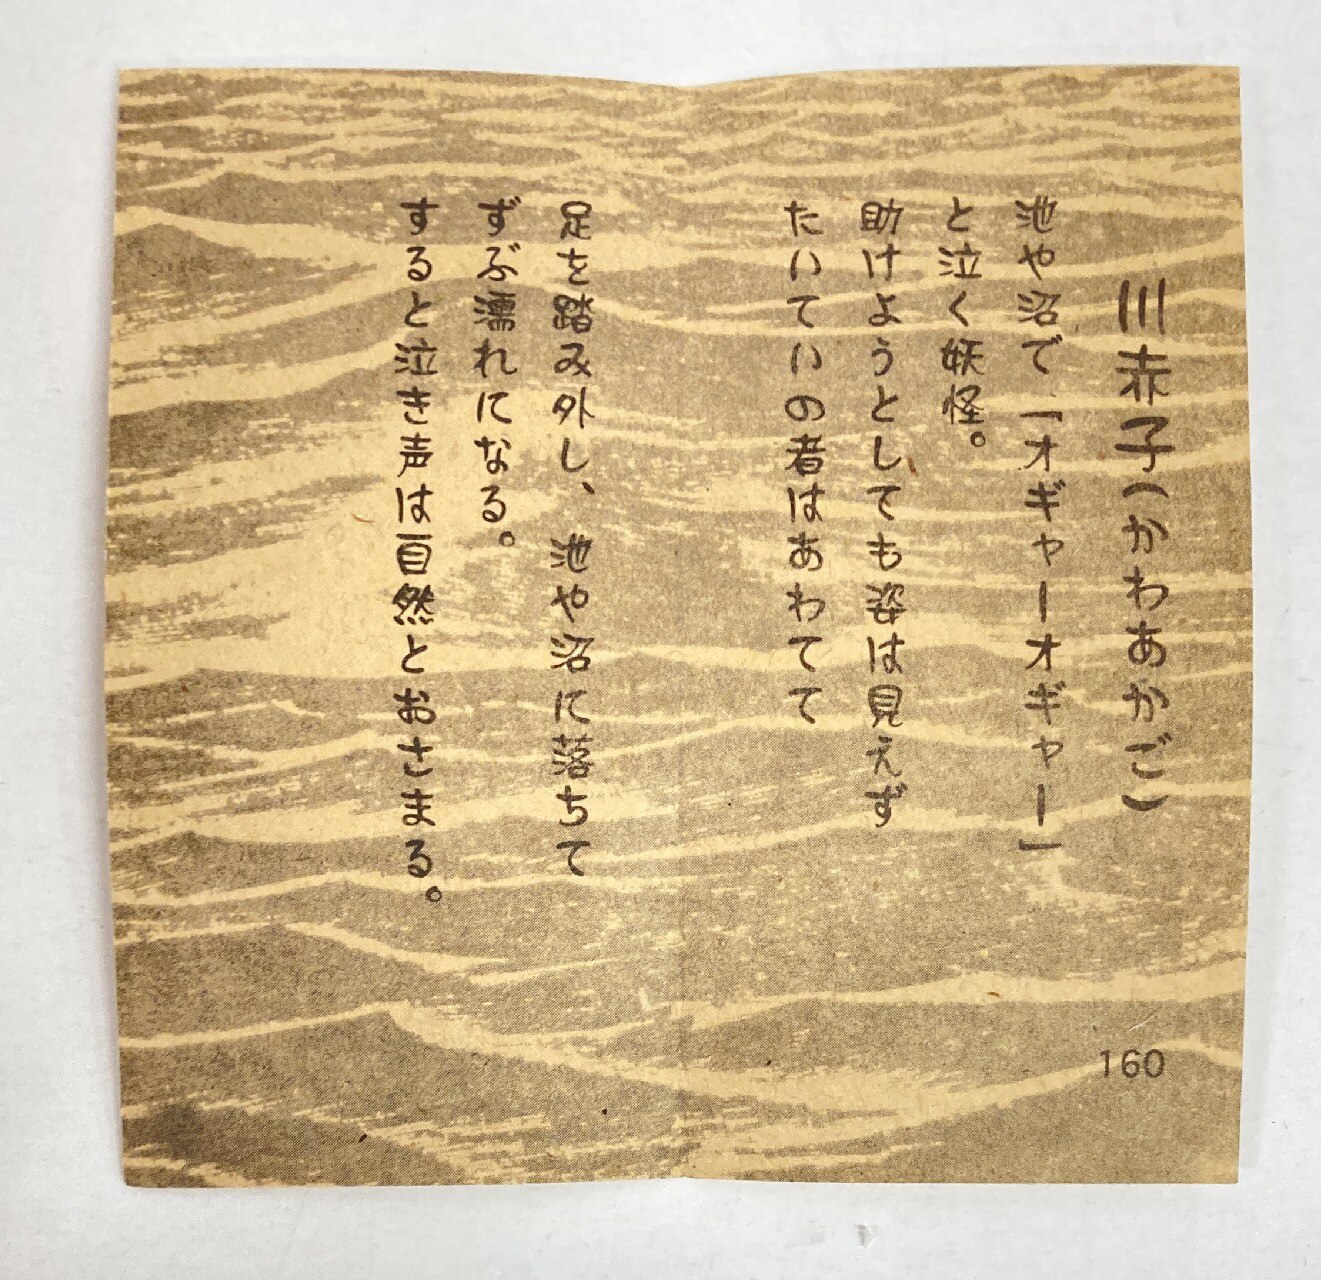 川赤子(かわあかご)
池や沼で「オギャーオギャー」
と泣く妖怪。
助けようとしても姿は見えず
たいていの者はあわてて
足を踏み外し、池や沼に落ちて
ずぶ濡れになる。
すると泣き声は自然とおさまる。
160